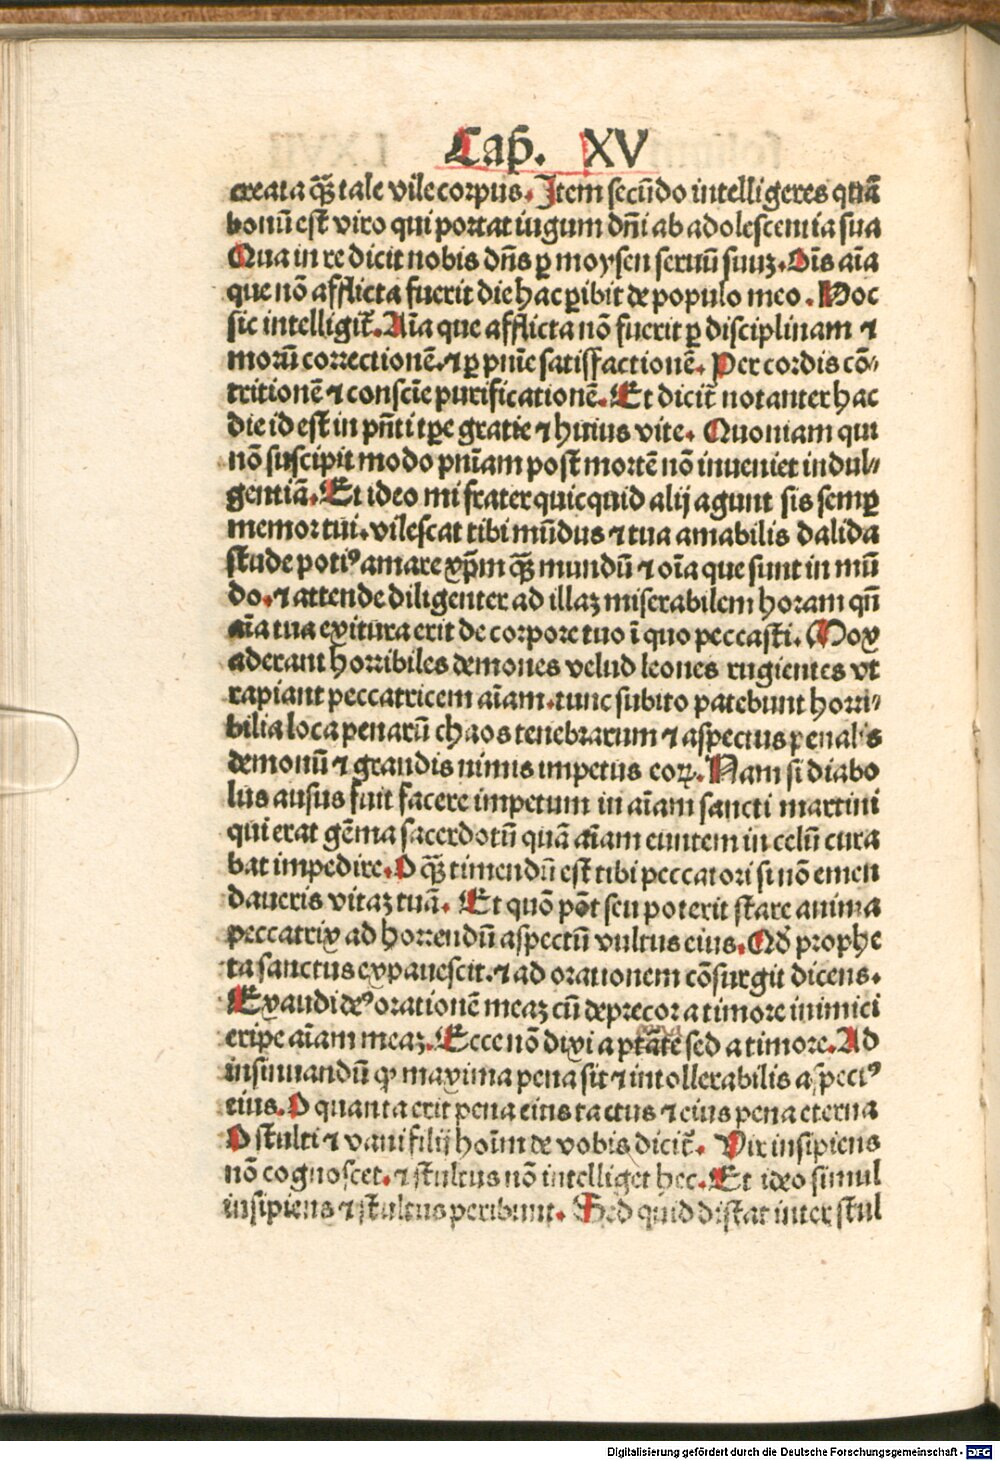 Cap̃. XV
creata q̃ȝ tale vile corpus. Item secũdo intelligeres quã
bonũ est viro qui portat iugum dñi ab adolescentia sua
Qua in re dicit nobis dñs ꝑ moysen seruũ suuȝ. Oĩs aĩa
que nõ afflicta fuerit die hac ꝑibit de populo meo. Hoc
sic intelligit̃. Aĩa que afflicta nõ fuerit ꝑ disciplinam ⁊
morũ correctionẽ. ⁊ ꝑ pnĩe satisfactionẽ. Per cordis cõ⸗
tritionẽ ⁊ consciẽ purificationẽ. Et dicit̃ notanter hac
die id est in pñti tꝑe gratie ⁊ huius vite. Quoniam qui
nõ suscipit modo pnĩam post mortẽ nõ inueniet indul⸗
gentiã. Et ideo mi frater quicquid alij agunt sis semꝑ
memor tui. vilescat tibi mũdus ⁊ tua amabilis dalida
stude potiꝰ amare xp̃m q̃ȝ mundũ ⁊ oĩa que sunt in mũ
do. ⁊ attende diligenter ad illaȝ miserabilem horam qñ
aĩa tua exitura erit de corpore tuo ĩ quo peccasti. Mox
aderant horribiles demones velud leones rugientes vt
rapiant peccatricem aĩam. tunc subito patebunt horri⸗
bilia loca penarũ chaos tenebrarum ⁊ aspectus penalis
demonũ ⁊ grandis nimis impetus eoꝝ. Nam si diabo
lus ausus fuit facere impetum in aĩam sancti martini
qui erat gẽma sacerdotũ quã aĩam euntem in celũ cura
bat impedire. O q̃ȝ timendũ est tibi peccatori si nõ emen
daueris vitaȝ tuã. Et quõ põt seu poterit stare anima
peccatrix ad horrendũ aspectũ vultus eius. Qđ prophe
ta sanctus expauescit. ⁊ ad orationem cõsurgit dicens.
Exaudi deꝰ orationẽ meaȝ cũ deprecor a timore inimici
eripe aĩam meaȝ. Ecce nõ dixi a ptãte sed a timore. Ad
insinuandũ ꝙ maxima pena sit ⁊ intollerabilis aspectꝰ
eius. O quanta erit pena eius tactus ⁊ eius pena eterna
O stulti ⁊ vani filij hoĩm de vobis dicit̃. Vir insipiens
nõ cognoscet. ⁊ stultus nõ intelliget hec. Et ideo simul
insipiens ⁊ stultus peribunt. Sed quid distat inter stul
Digitalisierung gefördert durch die Deutsche Forschungsgemeinschaft - DFG